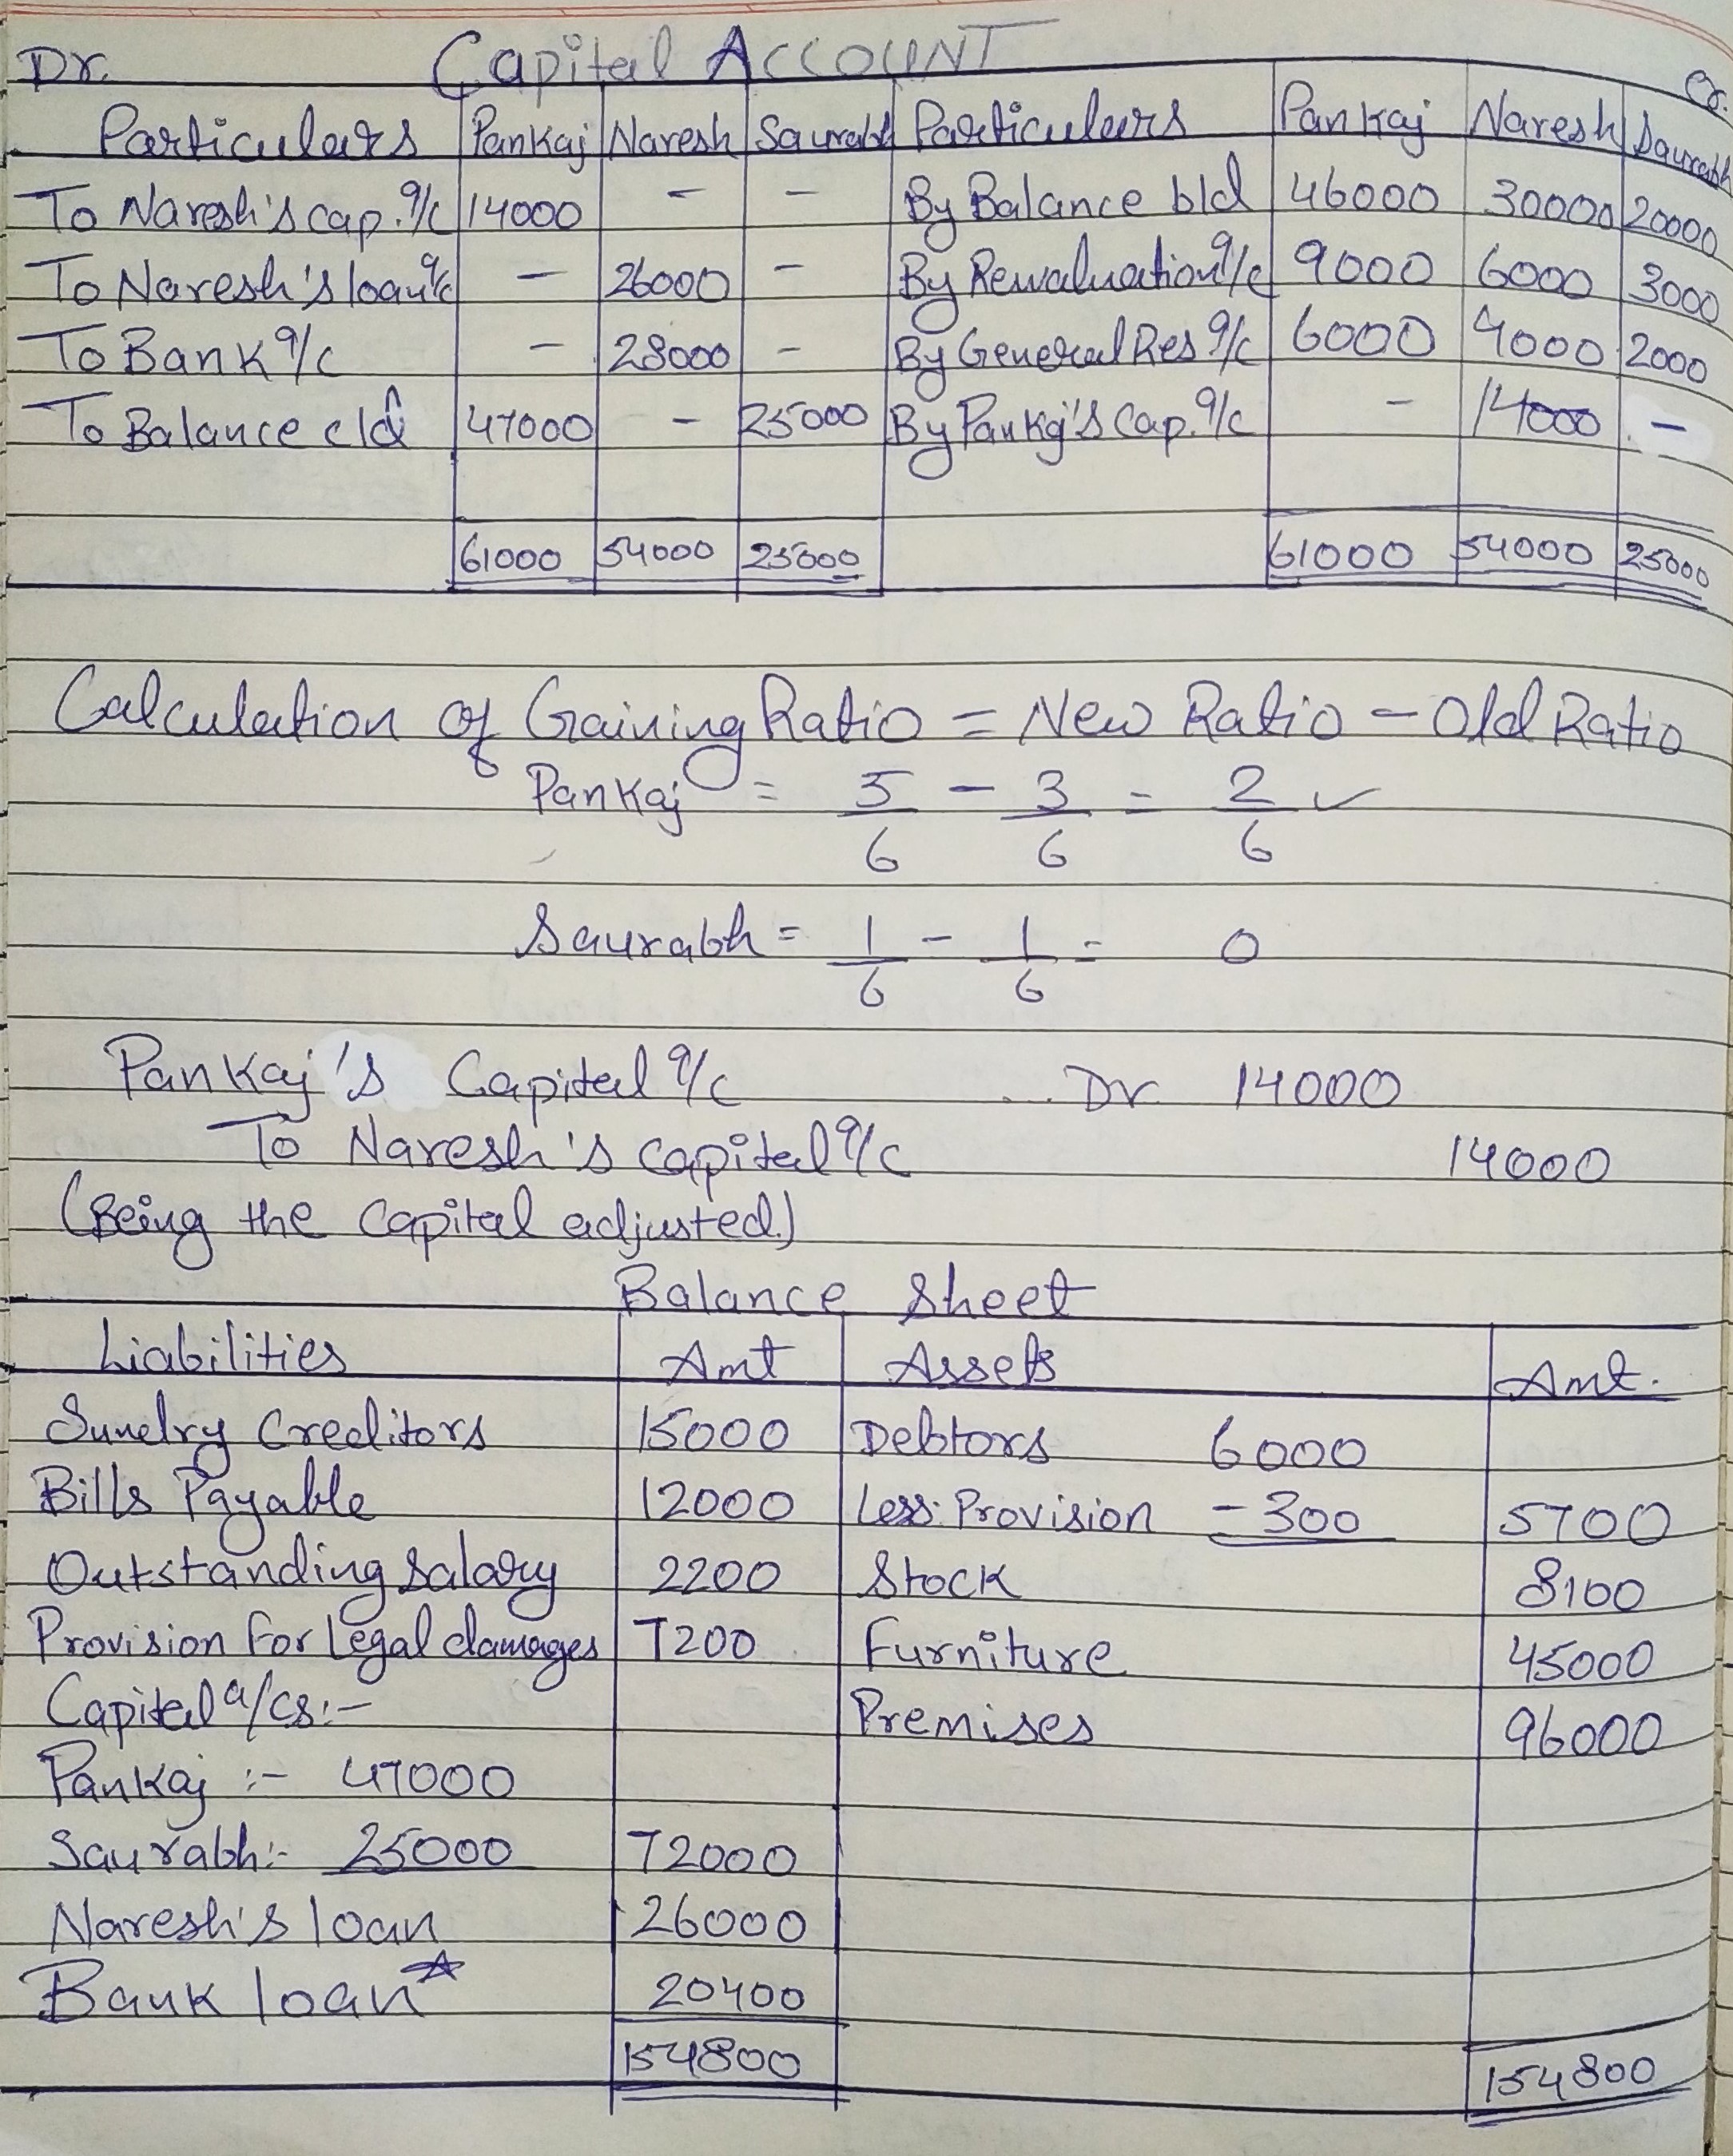 Dr. Capital ACCOUNT Cr.
Particulars Pankaj Naresh Saurabh Particulars Pankaj Naresh Saurabh
To Naresh's cap. a/c 14000 - - By Balance b/d 46000 30000 20000
To Naresh's loan a/c - 26000 - By Revaluation a/c 9000 6000 3000
To Bank a/c - 28000 - By General Res a/c 6000 4000 2000
To Balance c/d 47000 - 25000 By Pankaj's Cap. a/c - 14000 -
61000 54000 25000 61000 54000 25000
Calculation of Gaining Ratio = New Ratio - Old Ratio
Pankaj = 5/6 - 3/6 = 2/6 ✓
Saurabh = 1/6 - 1/6 = 0
Pankaj's Capital a/c ... Dr 14000
To Naresh's capital a/c 14000
(Being the capital adjusted.)
Balance Sheet
Liabilities Amt Assets Amt.
Sundry Creditors 15000 Debtors 6000
Bills Payable 12000 Less: Provision - 300 5700
Outstanding Salary 2200 Stock 8100
Provision For Legal damages 7200 Furniture 45000
Capital a/cs:- Premises 96000
Pankaj :- 47000
Saurabh:- 25000 72000
Naresh's loan 26000
Bank loan☆ 20400
154800 154800